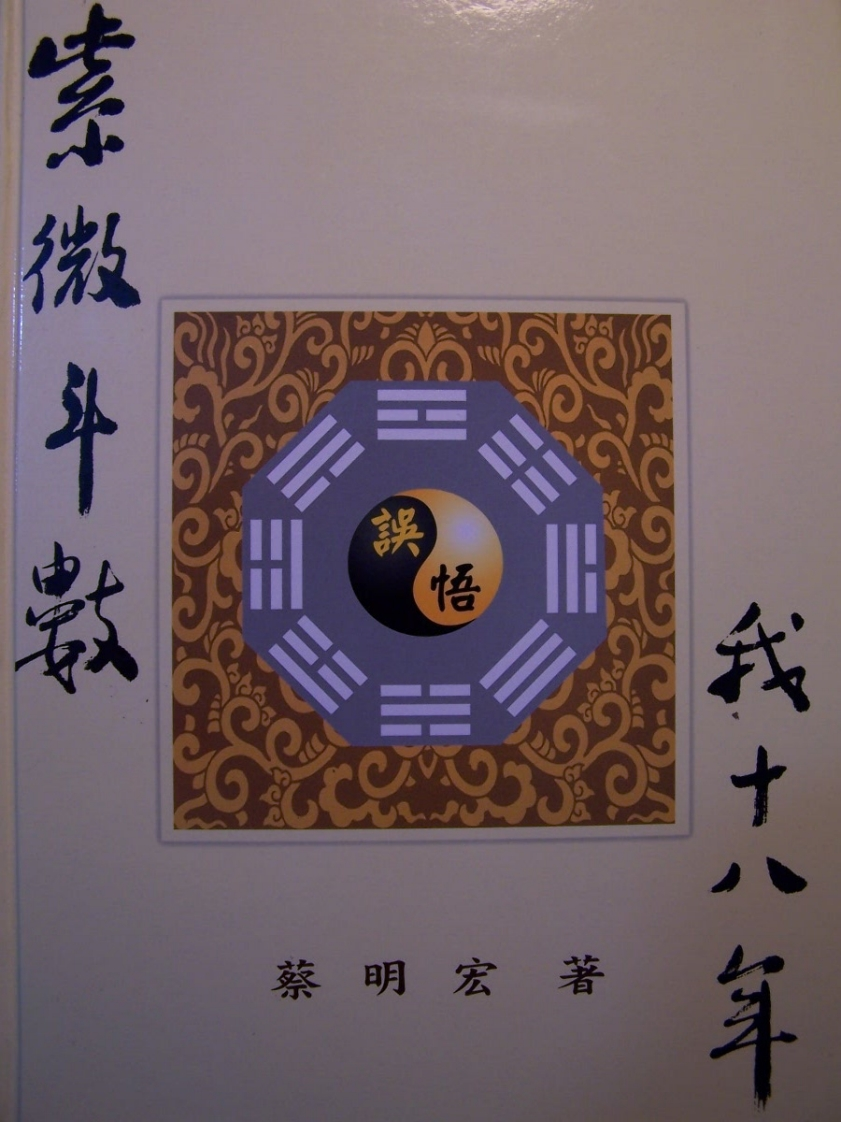 紫微斗數
誤
悟
我十八年
蔡明宏 著